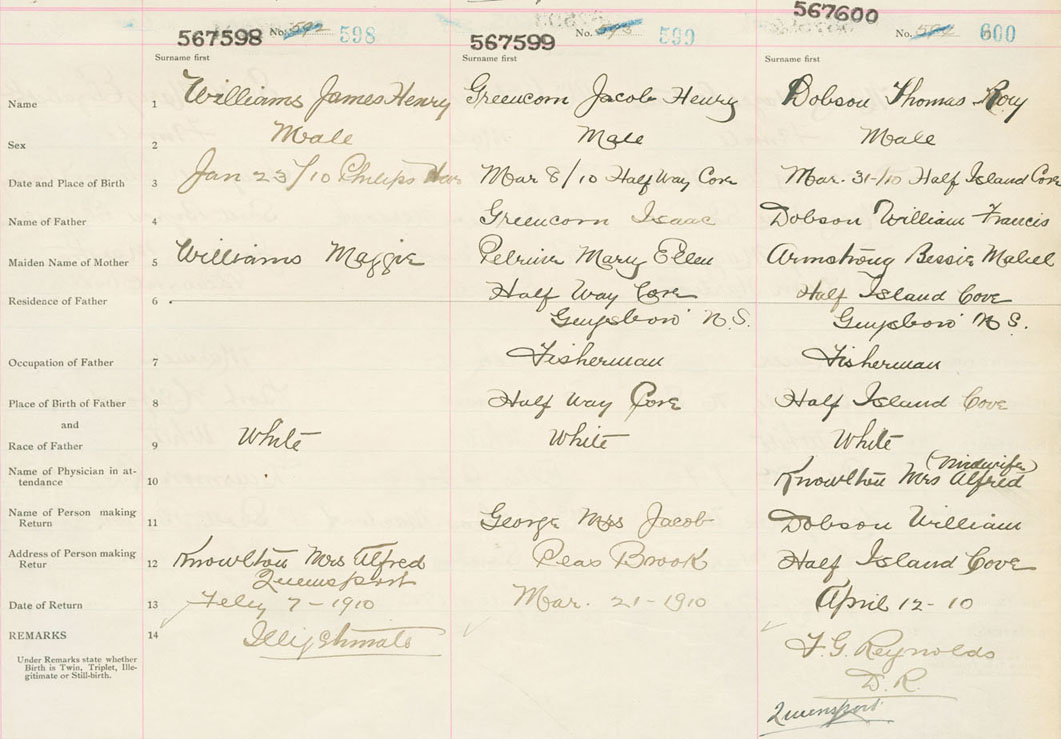 567598 No. 592 598
567599 No. 593 599
567600 No. 594 600
Surname first Surname first Surname first
Name 1 Williams James Henry Greencorn Jacob Henry Dobson Thomas Roy
Sex 2 Male Male Male
Date and Place of Birth 3 Jan 23/10 Philips Har Mar 8/10 Half Way Cove Mar. 31-/10 Half Island Cove
Name of Father 4 Greencorn Isaac Dobson William Francis
Maiden Name of Mother 5 Williams Maggie Pelrine Mary Ellen Armstrong Bessie Mabel
Residence of Father 6 Half Way Cove Half Island Cove
Guysboro' N.S. Guysboro' N.S.
Occupation of Father 7 Fisherman Fisherman
Place of Birth of Father 8 Half Way Cove Half Island Cove
and
Race of Father 9 White White White
Name of Physician in at-
tendance 10 Knowlton Mrs Alfred (midwife)
Name of Person making
Return 11 George Mrs Jacob Dobson William
Address of Person making
Retur 12 Knowlton Mrs Alfred Peas Brook Half Island Cove
Queensport
Date of Return 13 Feby 7-1910 Mar. 21-1910 April 12-10
REMARKS 14 Illigitimate F. G. Reynolds
D. R.
Queensport
Under Remarks state whether
Birth is Twin, Triplet, Ille-
gitimate or Still-birth.